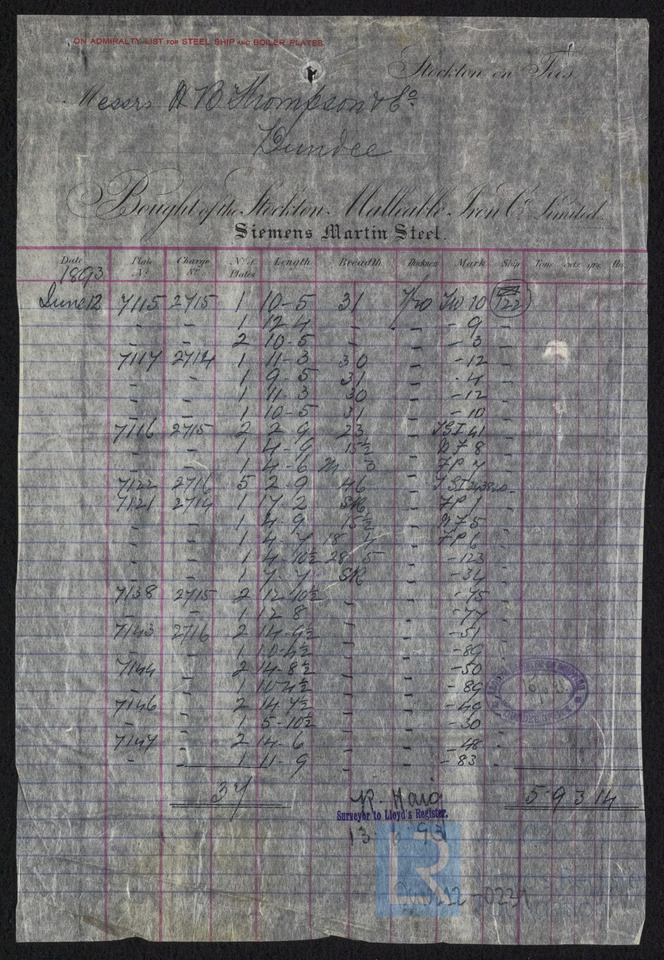 ON ADMIRALTY LIST FOR STEEL SHIP AND BOILER PLATES.
Stockton on Tees
Messrs W B Thompson & Co
Dundee
Bought of the Stockton Malleable Iron Co Limited.
Siemens Martin Steel.
Date Plate No Charge No No of Plates Length Breadth Thickness Mark Ship Tons cwts qrs lbs
1893
June 12 7115 2715 1 10-5 31 7/20 10 122
- - 1 12-4 - - - 9 -
- - 2 10-5 - - - 3 -
7117 2714 1 11-3 30 - - 12 -
- - 1 9-5 31 - - 4 -
- - 1 11-3 30 - - 12 -
- - 1 10-5 31 - - 10 -
7116 2715 2 2-9 23 - 41 -
- - 1 4-9 15½ - 8 -
- - 1 4-6 - 7P 7 -
7122 2716 5 2-9 46 -
7121 2714 1 17-2 SK - 7P 1 -
- - 1 4-9 15½ - 5 -
- - 1 4-7 18 - 7P 6 -
- - 1 14-10½ 28.5 - - 123 -
- - 1 7-7 SK - - 34 -
7138 2715 2 12-10½ - - - 75 -
- - 1 12-8 - - - 77 -
7143 2716 2 14-9½ - - - 51 -
- - 1 10-4½ - - - 89 -
7144 - 2 14-8½ - - - 50 -
- - 1 10-4½ - - - 89 -
7146 - 2 14-7½ - - - 49 -
- - 1 5-10½ - - - 30 -
7147 - 2 14-6 - - - 48 -
- - 1 11-9 - - - 83 -
37 5 9 3 14
R. Haig
Surveyor to Lloyd's Register.
13.6.93
LR